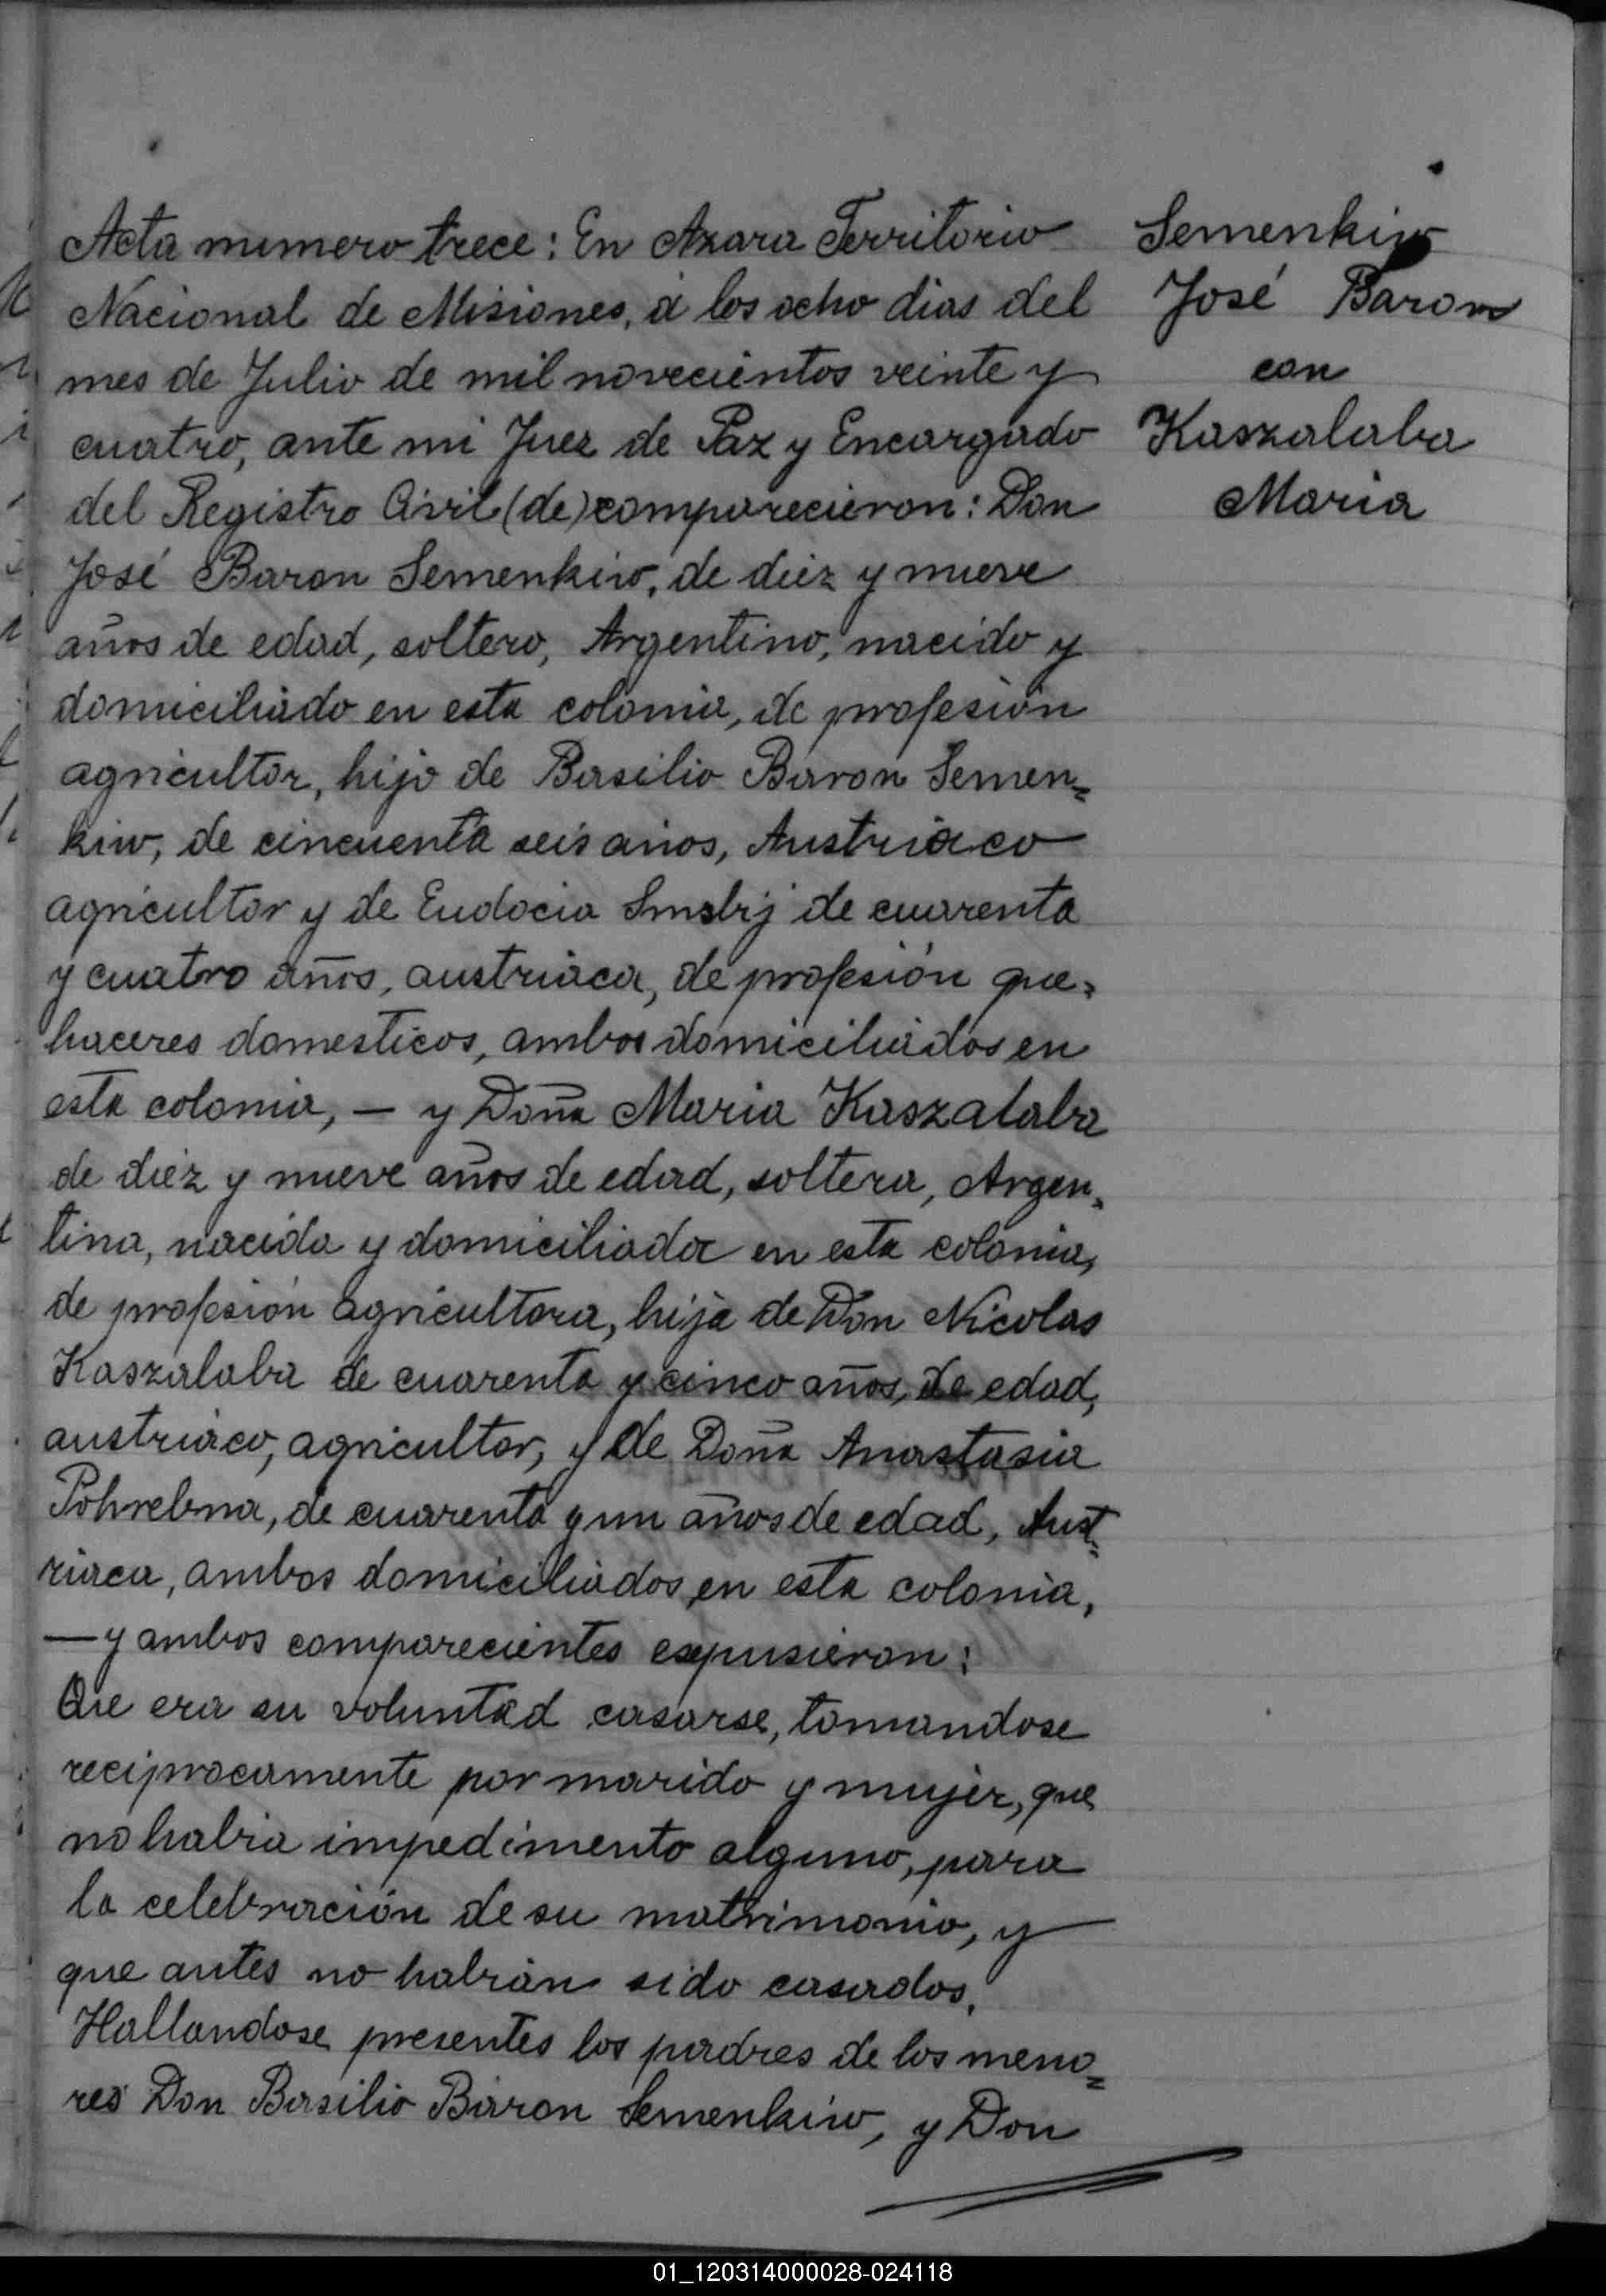 Acta numero trece: En Azara Territorio
Nacional de Misiones, á los ocho dias del
mes de Julio de mil novecientos veinte y
cuatro, ante mi Juez de Paz y Encargado
del Registro Civil (de) comparecieron: Don
José Baron Semenkiw, de diez y nueve
años de edad, soltero, Argentino, nacido y
domiciliado en esta colonia, de profesión
agricultor, hijo de Basilio Baron Semen=
kiw, de cincuenta seis años, Austriaco
agricultor y de Eudocia de cuarenta
y cuatro años, austriaca, de profesión que=
haceres domesticos, ambos domiciliados en
esta colonia, — y Doña Maria Kaszalaba
de diez y nueve años de edad, soltera, Argen=
tina, nacida y domiciliada en esta colonia,
de profesión agricultora, hija de Don Nicolas
Kaszalaba de cuarenta y cinco años, de edad,
austriaco, agricultor, y de Doña Anastasia
Pohrebna, de cuarenta y un años de edad, Aust=
riaca, ambos domiciliados en esta colonia,
— y ambos comparecientes expusieron:
Que era su voluntad casarse, tomandose
reciprocamente por marido y mujer, que
no habia impedimento alguno, para
la celebración de su matrimonio, y
que antes no habián sido casados.
Hallandose presentes los padres de los meno=
res Don Basilio Baron Semenkiw, y Don
Semenkiw
José Baron
con
Kaszalaba
Maria
01_120314000028-024118